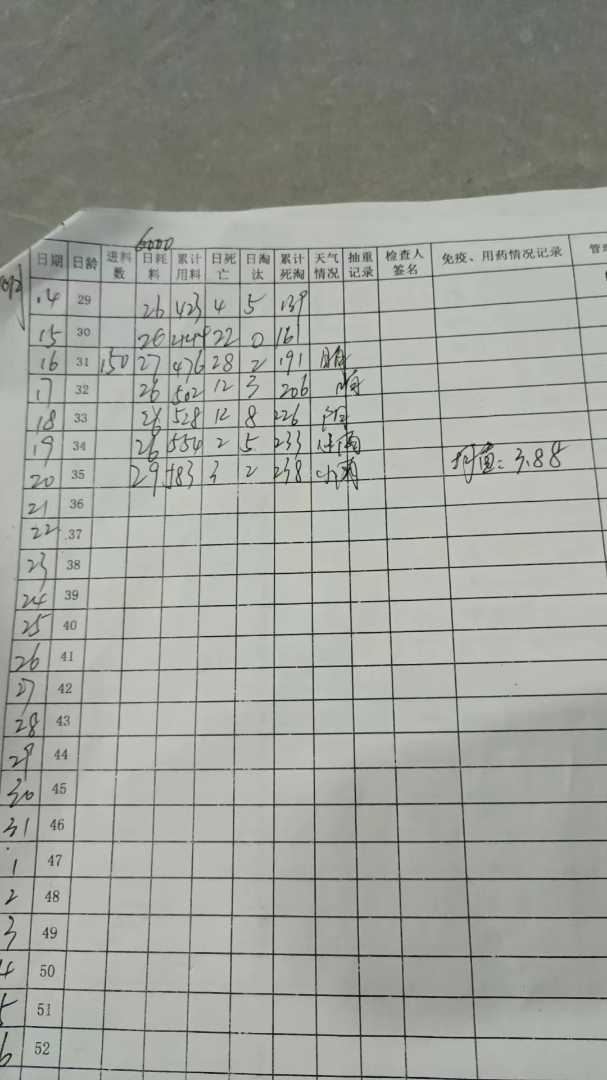 6000
日期 日龄 进料数 日耗料 累计用料 日死亡 日淘汰 累计死淘 天气情况 抽重记录 检查人签名 免疫、用药情况记录
14 29 26 423 4 5 139
15 30 26 449 22 0 161
16 31 150 27 476 28 2 191 晴
17 32 26 502 12 3 206
18 33 26 528 12 8 226
19 34 26 554 2 5 233
20 35 29 583 3 2 238 小雨 均重:3.88
21 36
22 37
23 38
24 39
25 40
26 41
27 42
28 43
29 44
30 45
31 46
1 47
2 48
3 49
4 50
5 51
6 52